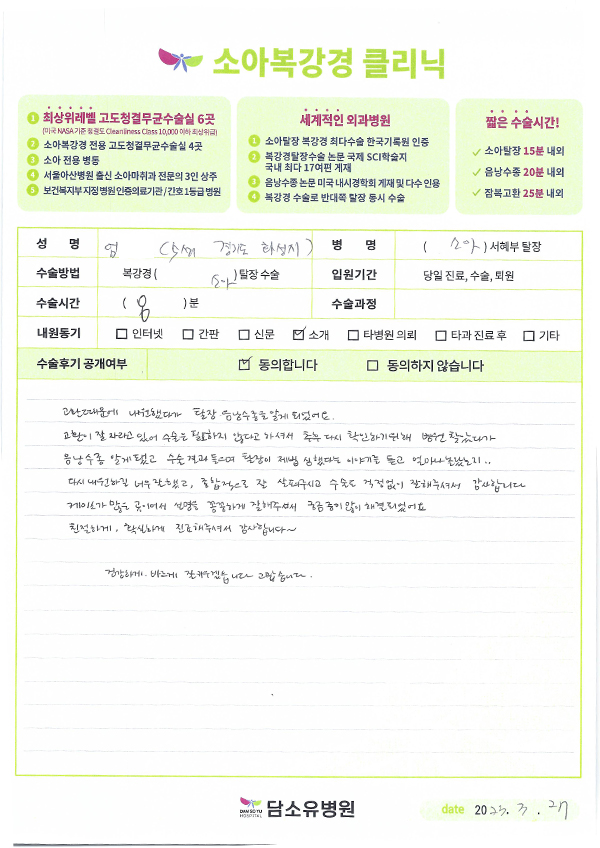 소아복강경 클리닉
1 최상위레벨 고도청결무균수술실 6곳
(미국 NASA 기준 청결도 Cleanliness Class 10,000 이하 최상위급)
2 소아복강경 전용 고도청결무균수술실 4곳
3 소아 전용 병동
4 서울아산병원 출신 소아마취과 전문의 3인 상주
5 보건복지부 지정 병원 인증의료기관 / 간호 1등급 병원
세계적인 외과병원
1 소아탈장 복강경 최다수술 한국기록원 인증
2 복강경탈장수술 논문 국제 SCI학술지
국내 최다 17여편 게재
3 음낭수종 논문 미국 내시경학회 게재 및 다수 인용
4 복강경 수술로 반대쪽 탈장 동시 수술
짧은 수술시간!
소아탈장 15분 내외
음낭수종 20분 내외
잠복고환 25분 내외
성 명 엄 (5세 경기도 화성시) 병 명 ( 소아 ) 서혜부 탈장
수술방법 복강경 ( 소아 ) 탈장 수술 입원기간 당일 진료, 수술, 퇴원
수술시간 ( ) 분 수술과정
내원동기 인터넷 간판 신문 소개 타병원 의뢰 타과 진료 후 기타
수술후기 공개여부 동의합니다 동의하지 않습니다
고환때문에 내원했다가 탈장 음낭수종을 알게 되었어요.
고환이 잘 자라고 있어 수술은 필요하지 않다고 하셔서 추후 다시 확인하기위해 병원 찾았다가
음낭수종 알게됐고 수술결과 들으며 탈장이 제법 심했다는 이야기를 듣고 얼마나 놀랐는지..
다시 내원하길 너무 잘했고, 종합적으로 잘 살펴주시고 수술도 걱정없이 잘해주셔서 감사합니다
케이스가 많은 곳이어서 설명을 꼼꼼하게 잘해주셔서 궁금증이 많이 해결되었어요
친절하게, 확실하게 진료해주셔서 감사합니다~
건강하게. 바르게 잘키우겠습니다 고맙습니다.
DAMSOYU
HOSPITAL 담소유병원
date 2023. 3. 27